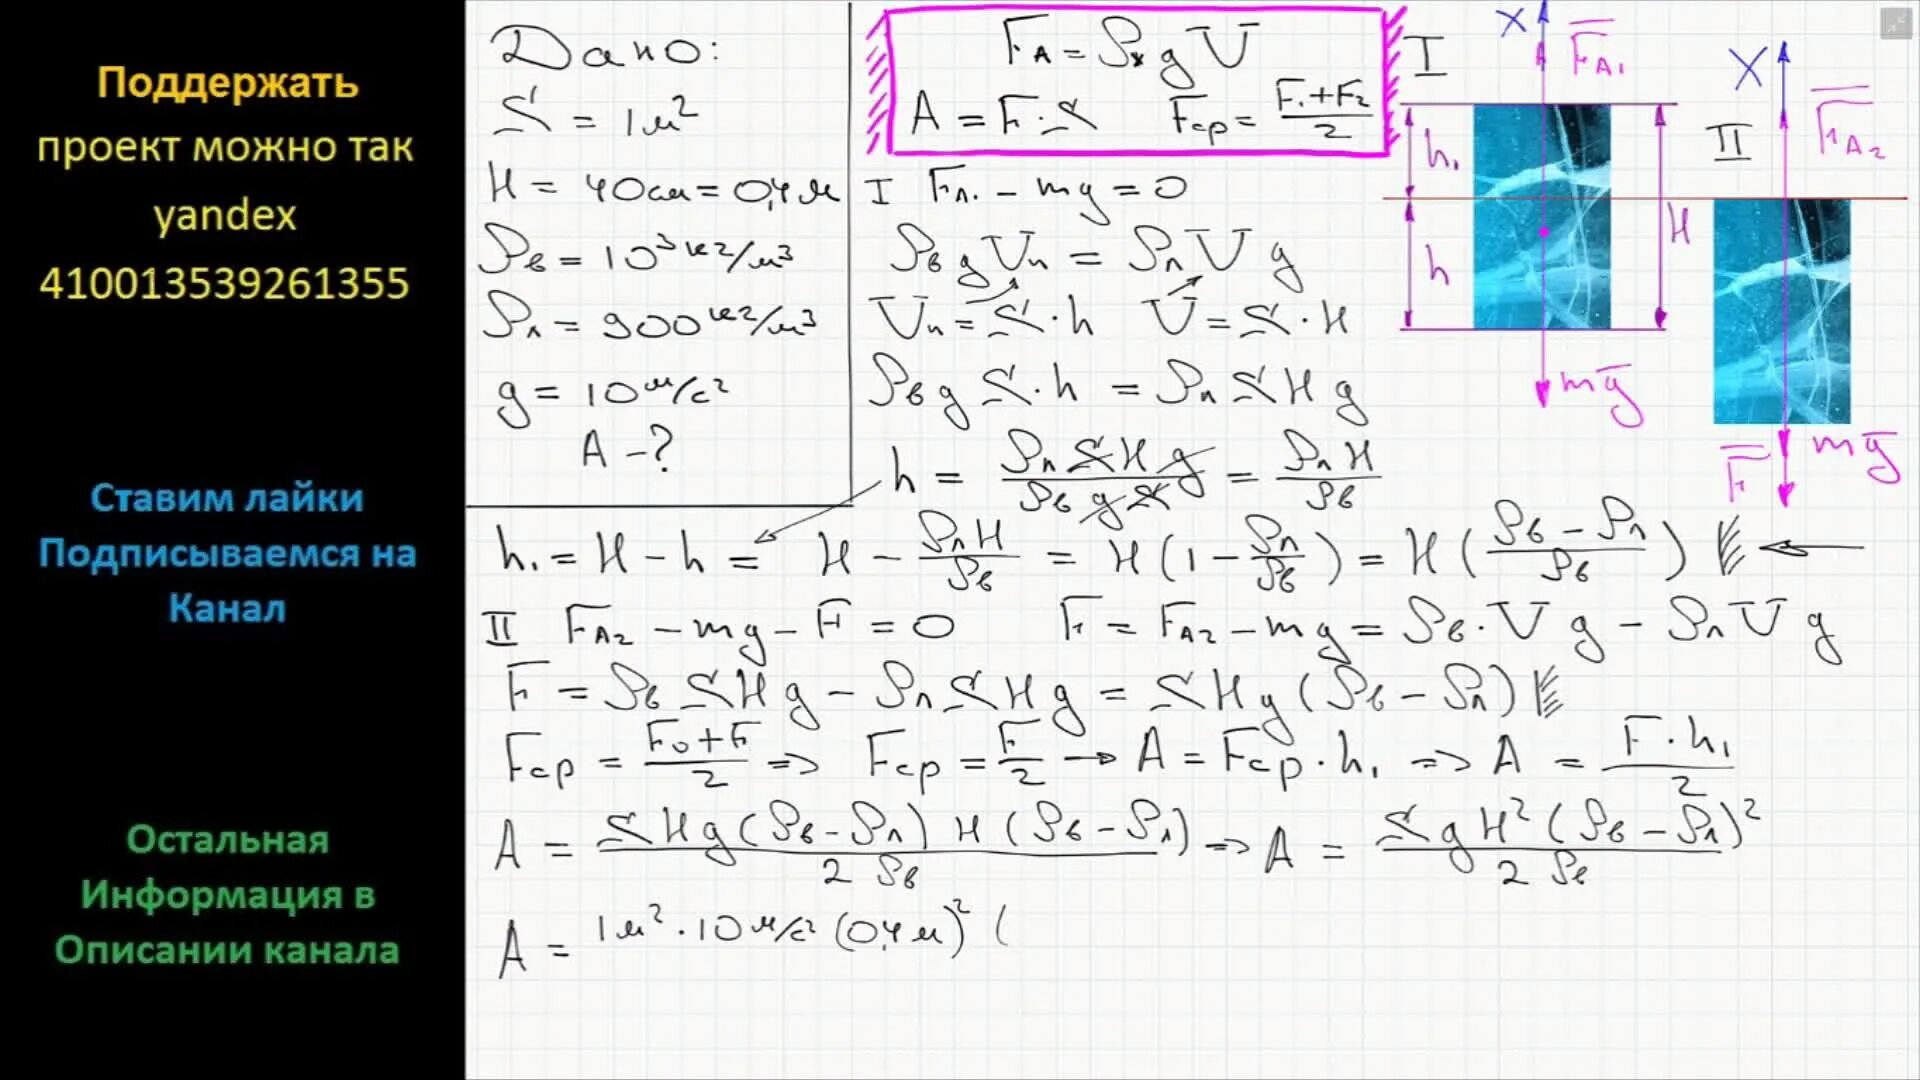 Поддержать
проект можно так
yandex
410013539261355
Ставим лайки
Подписываемся на
Канал
Остальная
Информация в
Описании канала
Дано:
S = 1м²
H = 40см = 0,4м
ρв = 10³ кг/м³
ρл = 900 кг/м³
g = 10 м/с²
A – ?
Fᴀ = ρж g V
A = F · S    Fср = (F₁ + F₂)/2
I   Fл. – mg = 0
ρв g Vп = ρл V g
Vп = S · h   V = S · H
ρв g S · h = ρл S H g
h = ρл S H g / ρв g S = ρл H / ρв
h₁ = H – h = H – ρл H / ρв = H (1 – ρл/ρв) = H ((ρв – ρл)/ρв)
II   Fᴀ₂ – mg – F = 0   F = Fᴀ₂ – mg = ρв · V g – ρл V g
F = ρв S H g – ρл S H g = S H g (ρв – ρл)
Fср = (F₀ + F)/2 => Fср = F/2 → A = Fср · h₁ => A = F · h₁ / 2
A = S H g (ρв – ρл) H (ρв – ρл) / 2 ρв => A = S g H² (ρв – ρл)² / 2 ρв
A = 1м² · 10 м/с² (0,4м)² (
I
X
Fᴀ₁
h₁
h
H
mg
II
X
Fᴀ₂
F
mg